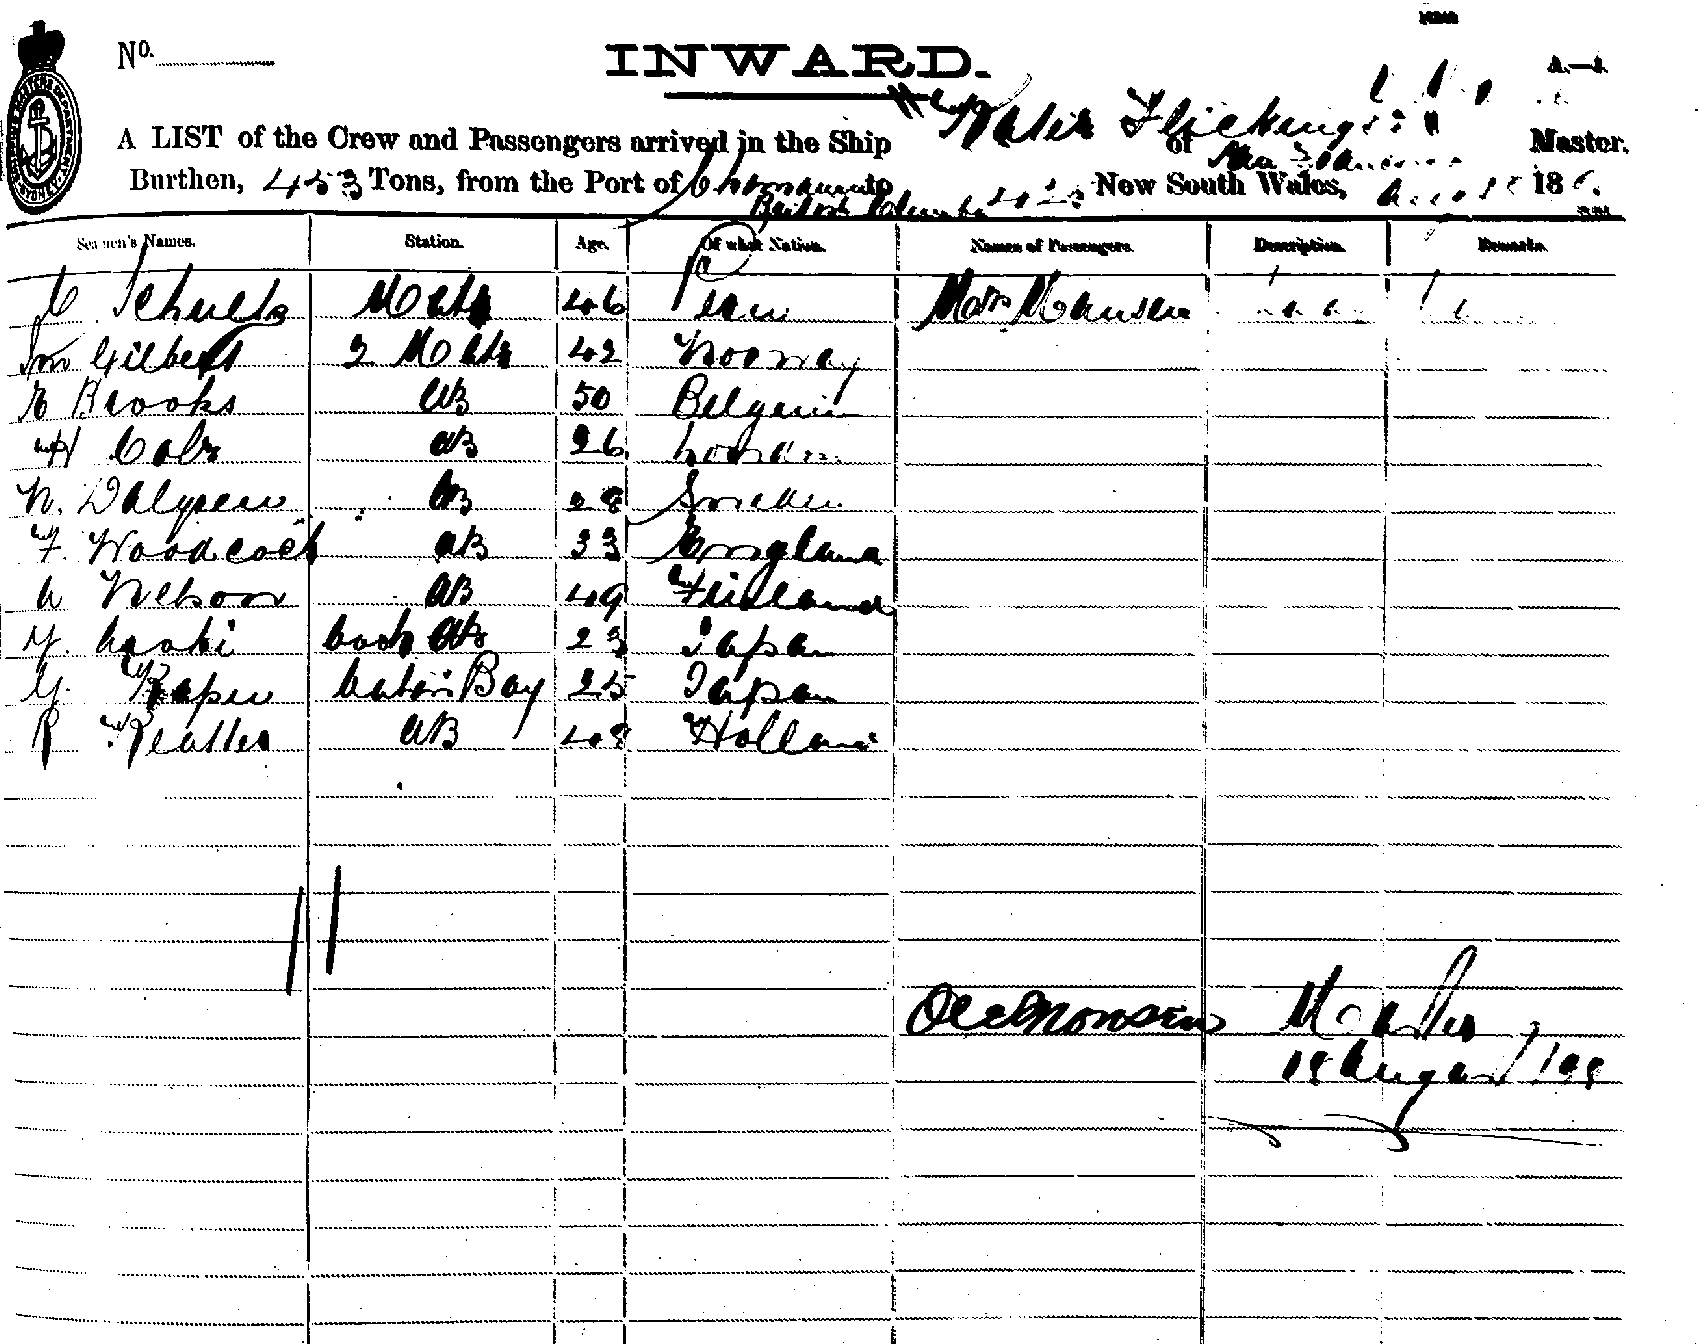 No.
INWARD.
A LIST of the Crew and Passengers arrived in the Ship of San Master.
Burthen, 453 Tons, from the Port of Chemainus to New South Wales, 18
British Columbia
Seamen's Names. Station. Age. Of what Nation. Names of Passengers. Description. Remarks.
C Schultz Mate 46 Mrs
Wm Gilbert 2 Mate 42 Norway
E Brooks AB 50 Belgium
H Cole AB 26 London
N. Dalgren AB 28 Sweden
F. Woodcock AB 33 England
A Nelson AB 49 Finland
Y. Aoki Cook AB 23 Japan
Y. Cabin Boy 25 Japan
R AB 48 Holland
Ole Monsen Master
18 August